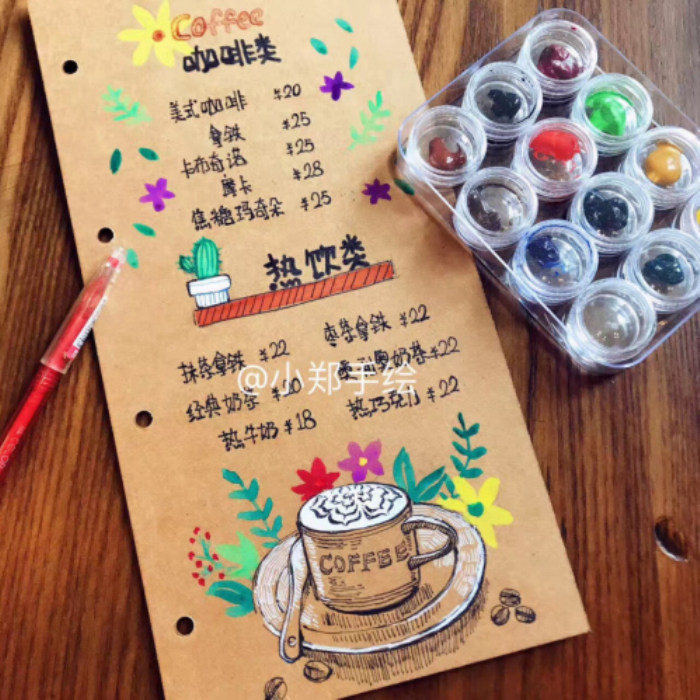 Coffee
咖啡类
美式咖啡 ¥20
拿铁 ¥25
卡布奇诺 ¥25
摩卡 ¥28
焦糖玛奇朵 ¥25
热饮类
抹茶拿铁 ¥22
枣茶拿铁 ¥22
奶茶 ¥22
经典奶茶
热巧克力 ¥22
热牛奶 ¥18
@小郑手绘
COFFEE